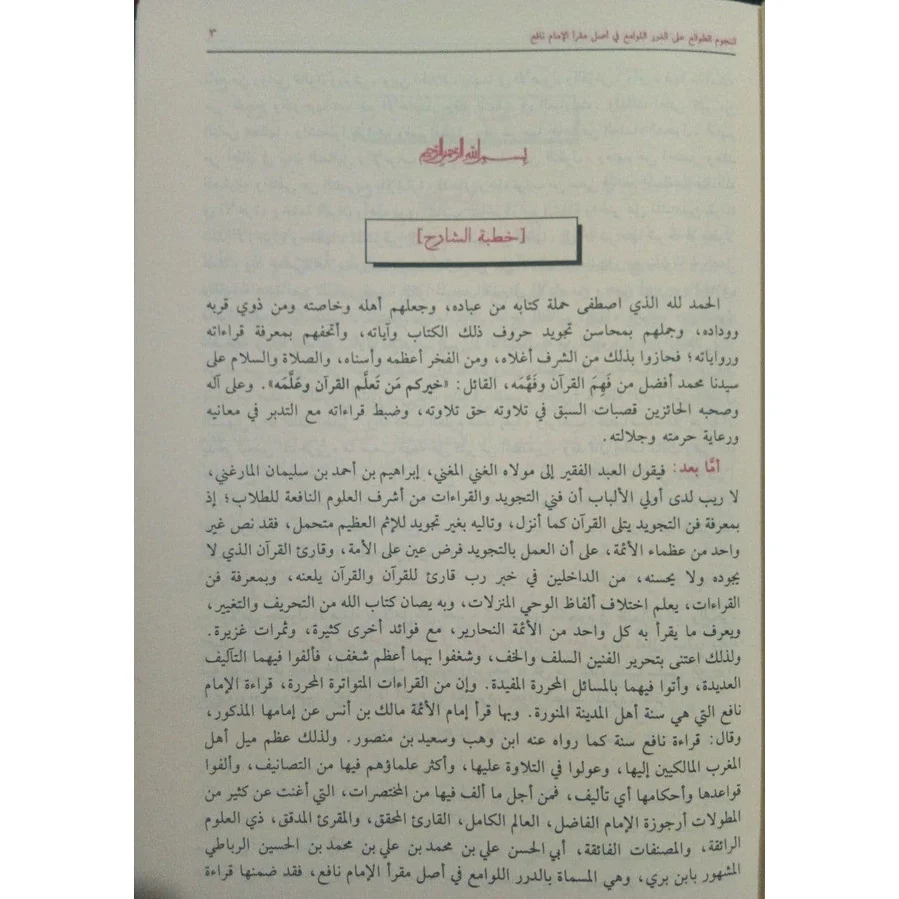 النجوم الطوالع على الدرر اللوامع في أصل مقرأ الإمام نافع ٣
بسم الله الرحمن الرحيم
[خطبة الشارح]
الحمد لله الذي اصطفى حملة كتابه من عباده، وجعلهم أهله وخاصته ومن ذوي قربه
ووداده، وجملهم بمحاسن تجويد حروف ذلك الكتاب وآياته، وأتحفهم بمعرفة قراءاته
ورواياته؛ فحازوا بذلك من الشرف أغلاه، ومن الفخر أعظمه وأسناه، والصلاة والسلام على
سيدنا محمد أفضل من فَهِمَ القرآن وفَهَّمَه، القائل: «خيركم مَن تَعلَّم القرآن وعَلَّمَه». وعلى آله
وصحبه الحائزين قصبات السبق في تلاوته حق تلاوته، وضبط قراءاته مع التدبر في معانيه
ورعاية حرمته وجلالته.
أمَّا بعد: فيقول العبد الفقير إلى مولاه الغني المغني، إبراهيم بن أحمد بن سليمان المارغني،
لا ريب لدى أولي الألباب أن فني التجويد والقراءات من أشرف العلوم النافعة للطلاب؛ إذ
بمعرفة فن التجويد يتلى القرآن كما أنزل، وتاليه بغير تجويد للإثم العظيم متحمل، فقد نص غير
واحد من عظماء الأئمة، على أن العمل بالتجويد فرض عين على الأمة، وقارئ القرآن الذي لا
يجوده ولا يحسنه، من الداخلين في خبر رب قارئ للقرآن والقرآن يلعنه، وبمعرفة فن
القراءات، يعلم اختلاف ألفاظ الوحي المنزلات، وبه يصان كتاب الله من التحريف والتغيير،
ويعرف ما يقرأ به كل واحد من الأئمة النحارير، مع فوائد أخرى كثيرة، وثمرات غزيرة.
ولذلك اعتنى بتحرير الفنين السلف والخف، وشغفوا بهما أعظم شغف، فألفوا فيهما التآليف
العديدة، وأتوا فيهما بالمسائل المحررة المفيدة. وإن من القراءات المتواترة المحررة، قراءة الإمام
نافع التي هي سنة أهل المدينة المنورة. وبها قرأ إمام الأئمة مالك بن أنس عن إمامها المذكور،
وقال: قراءة نافع سنة كما رواه عنه ابن وهب وسعيد بن منصور. ولذلك عظم ميل أهل
المغرب المالكيين إليها، وعولوا في التلاوة عليها، وأكثر علماؤهم فيها من التصانيف، وألفوا
قواعدها وأحكامها أي تأليف، فمن أجل ما ألف فيها من المختصرات، التي أغنت عن كثير من
المطولات أرجوزة الإمام الفاضل، العالم الكامل، القارئ المحقق، والمقرئ المدقق، ذي العلوم
الرائقة، والمصنفات الفائقة، أبي الحسن علي بن محمد بن علي بن محمد بن الحسين الرباطي
المشهور بابن بري، وهي المسماة بالدرر اللوامع في أصل مقرأ الإمام نافع، فقد ضمنها قراءة